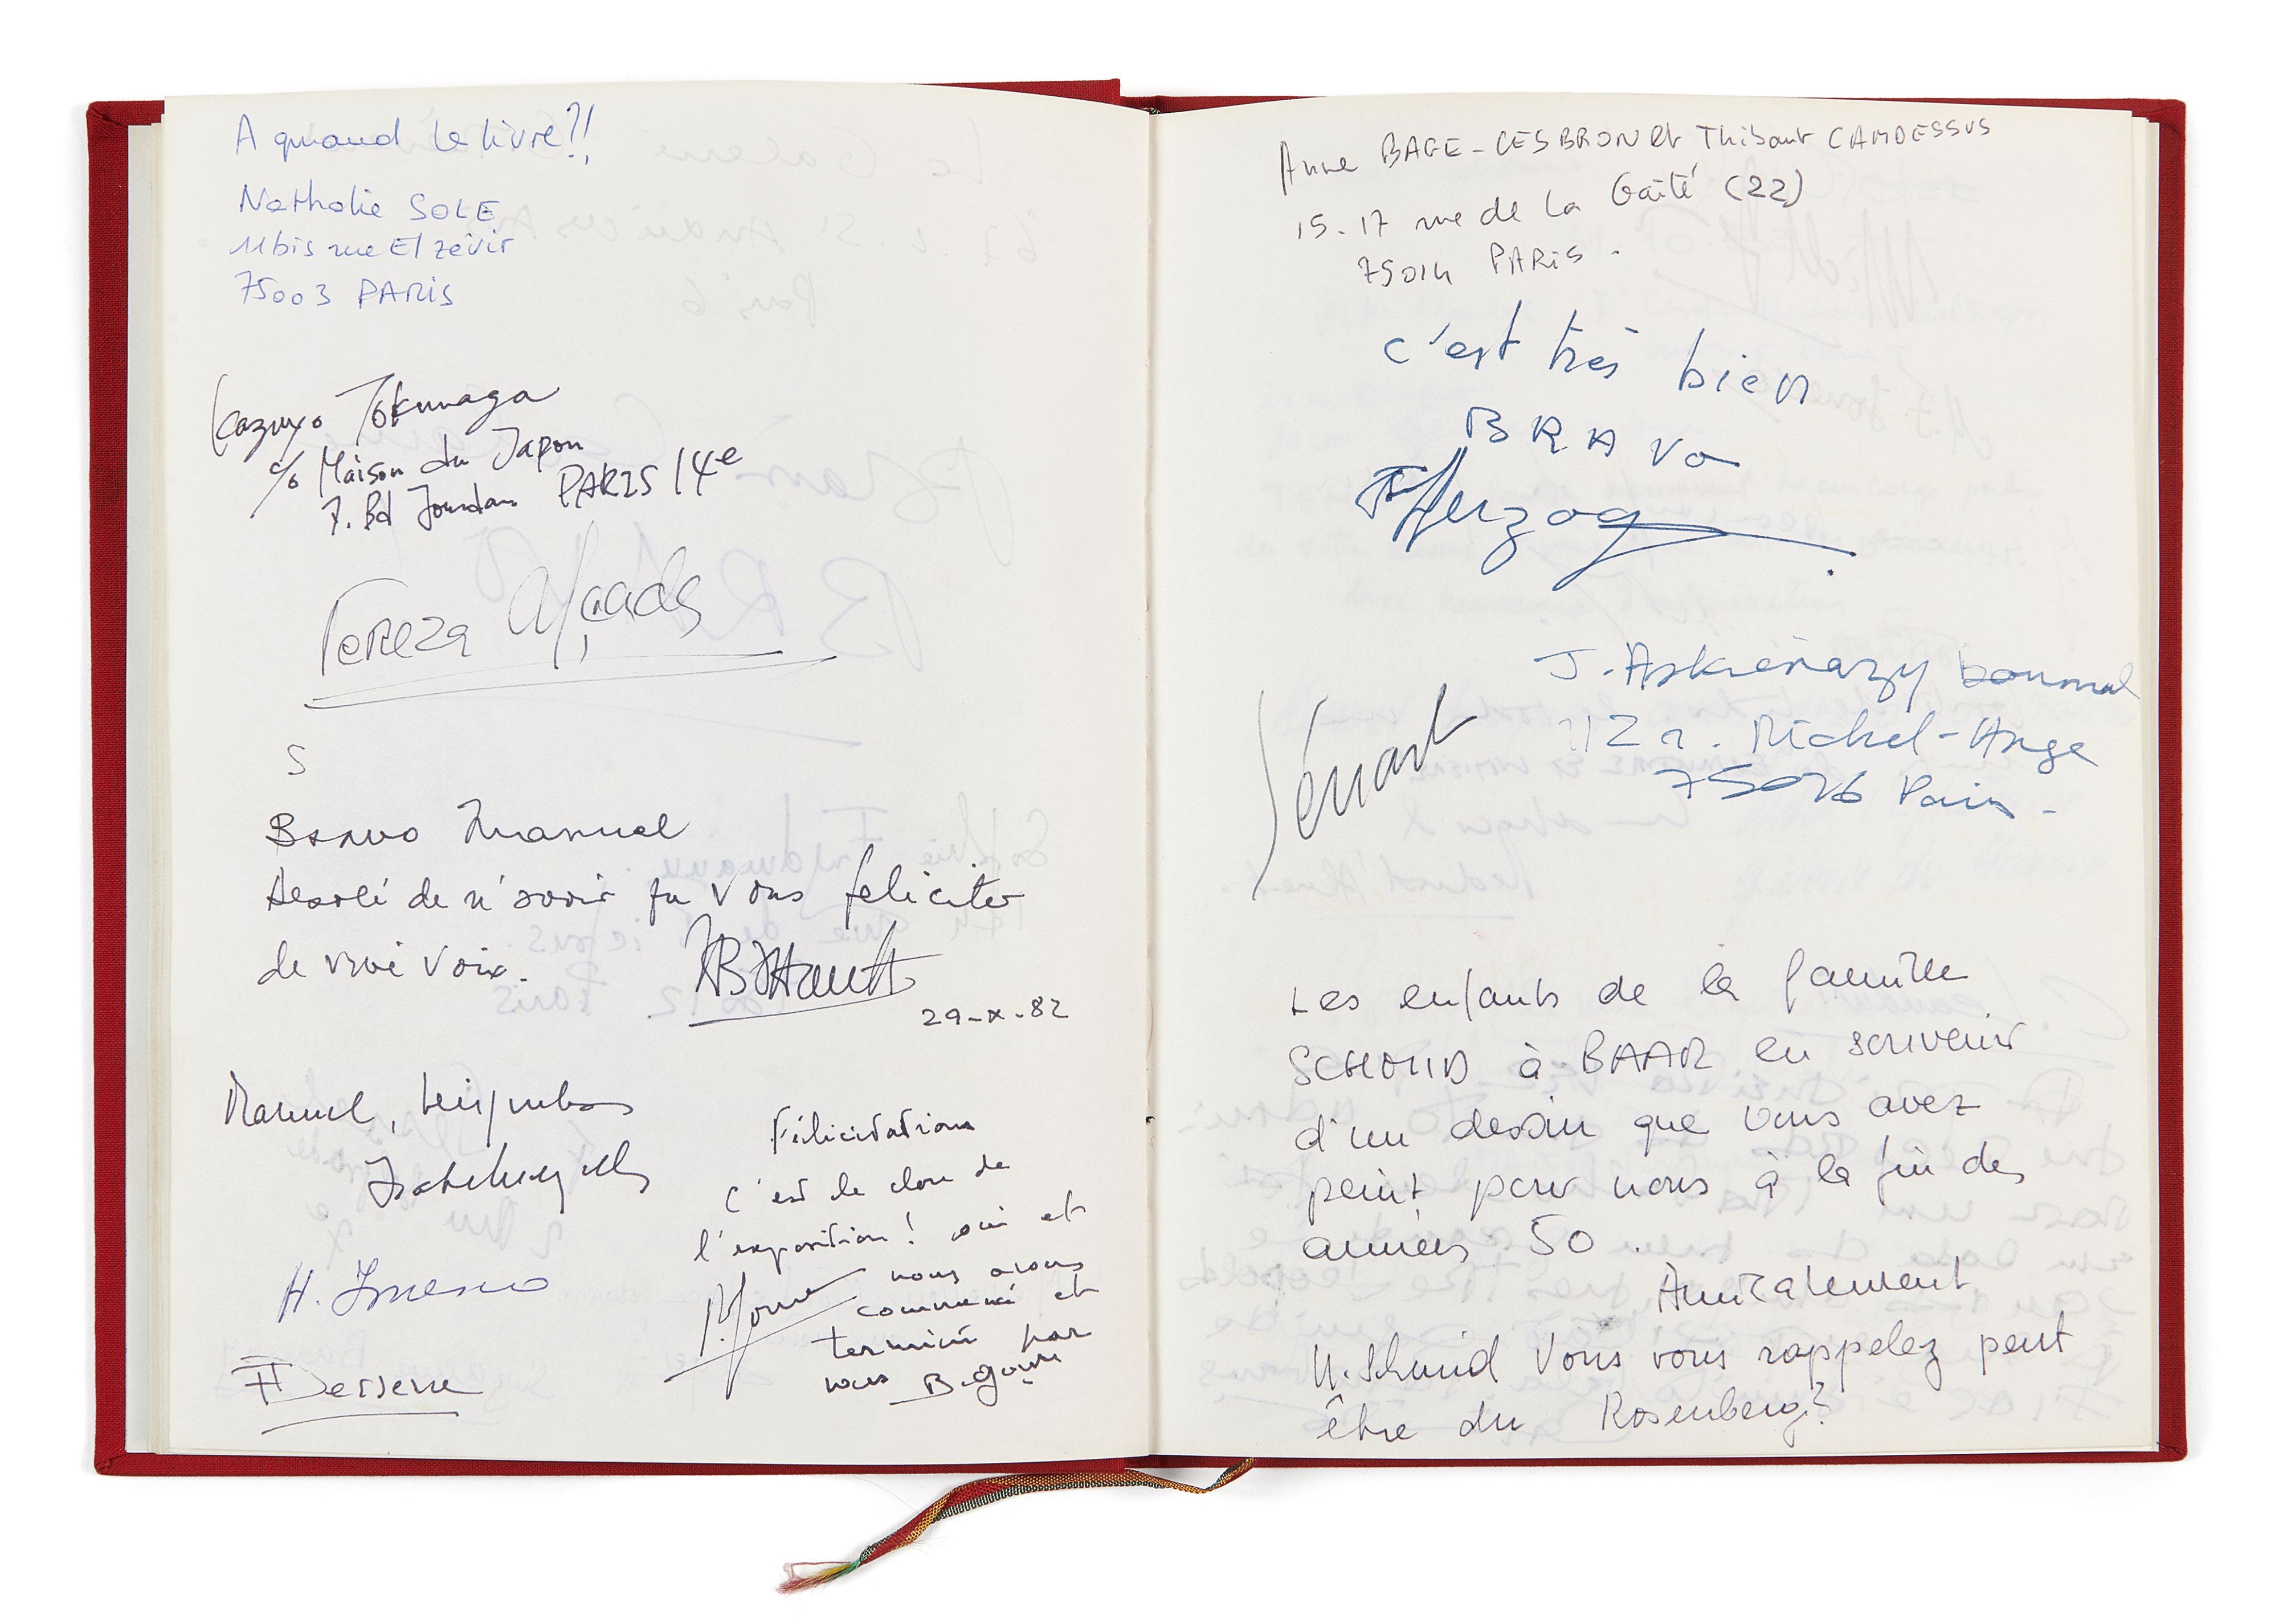 A quand le livre?!
Nathalie SOLE
11bis rue Elzévir
75003 PARIS
Kazuyo Tokunaga
c/o Maison du Japon
7. Bd Jourdan PARIS 14e
Tereza
S
Bravo Manuel
désolé de n'avoir pu vous feliciter
de vive voix.
29-X-82
Manuel,
Félicitations
c'est le clou de
l'exposition! oui et
nous avons
commencé et
terminé par
vous
H.
Anne BAGE-CESBRON et Thibaut CAMDESSUS
15-17 rue de la Gaîté (22)
75014 PARIS.
c'est très bien
BRAVO
Herzog
J. Askienazy
112 r. Michel-Ange
75016 Paris -
Les enfants de la famille
SCHMID à BAAR en souvenir
d'un dessin que vous avez
peint pour nous à la fin des
années 50.
Amicalement
H. Schmid Vous vous rappelez peut
être du Rosenberg?